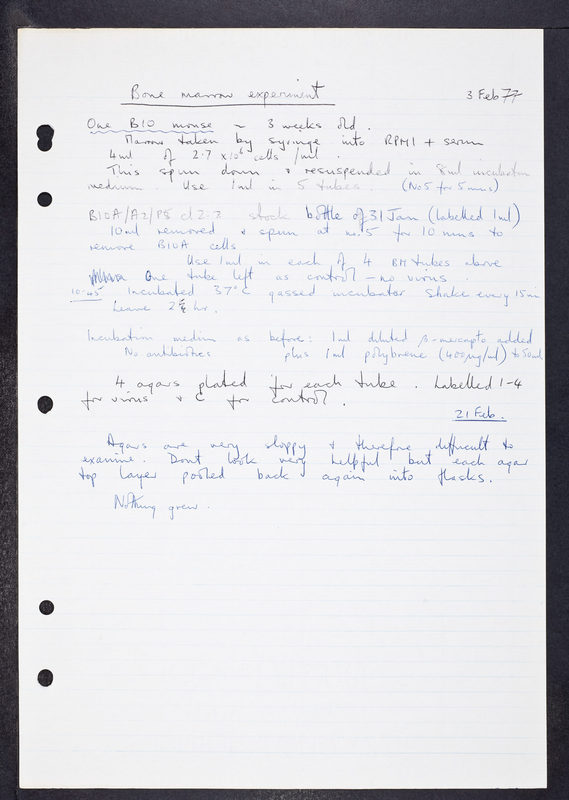 Bone marrow experiment
3 Feb 77
One B10 mouse ~ 3 weeks old.
Marrow taken by syringe into RPMI + serum
4ml of 2.7 x10⁶ cells/ml.
This spun down & resuspended in 8ml incubation
medium. Use 1ml in 5 tubes. (No 5 for 5 mins)
B10A/A2/P5 cl 2.3 stock bottle of 31 Jan (labelled 1ml)
10ml removed & spun at no. 5 for 10 mins to
remove B10A cells
Use 1ml in each of 4 BM tubes above.
One tube left as control – no virus.
10.45 Incubated 37°C gassed incubator Shake every 15 min
Leave 2 hr.
Incubation medium as before: 1ml diluted β-mercapto added
No antibiotics plus 1ml polybrene (400µg/ml) to 50ml
4 agars plated for each tube. Labelled 1-4
for virus & C for control.
21 Feb.
Agars are very sloppy & therefore difficult to
examine. Dont look very helpful but each agar
top layer pooled back again into flasks.
Nothing grew.